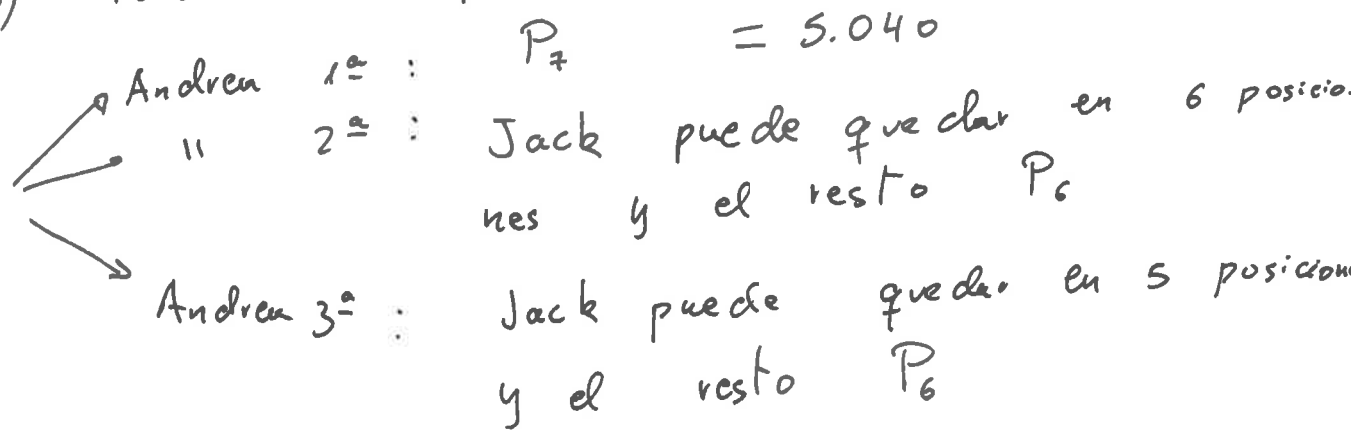 Andrea 1ª : P₇ = 5.040
" 2ª : Jack puede quedar en 6 posicio-
nes y el resto P₆
Andrea 3ª : Jack puede quedar en 5 posicion
y el resto P₆